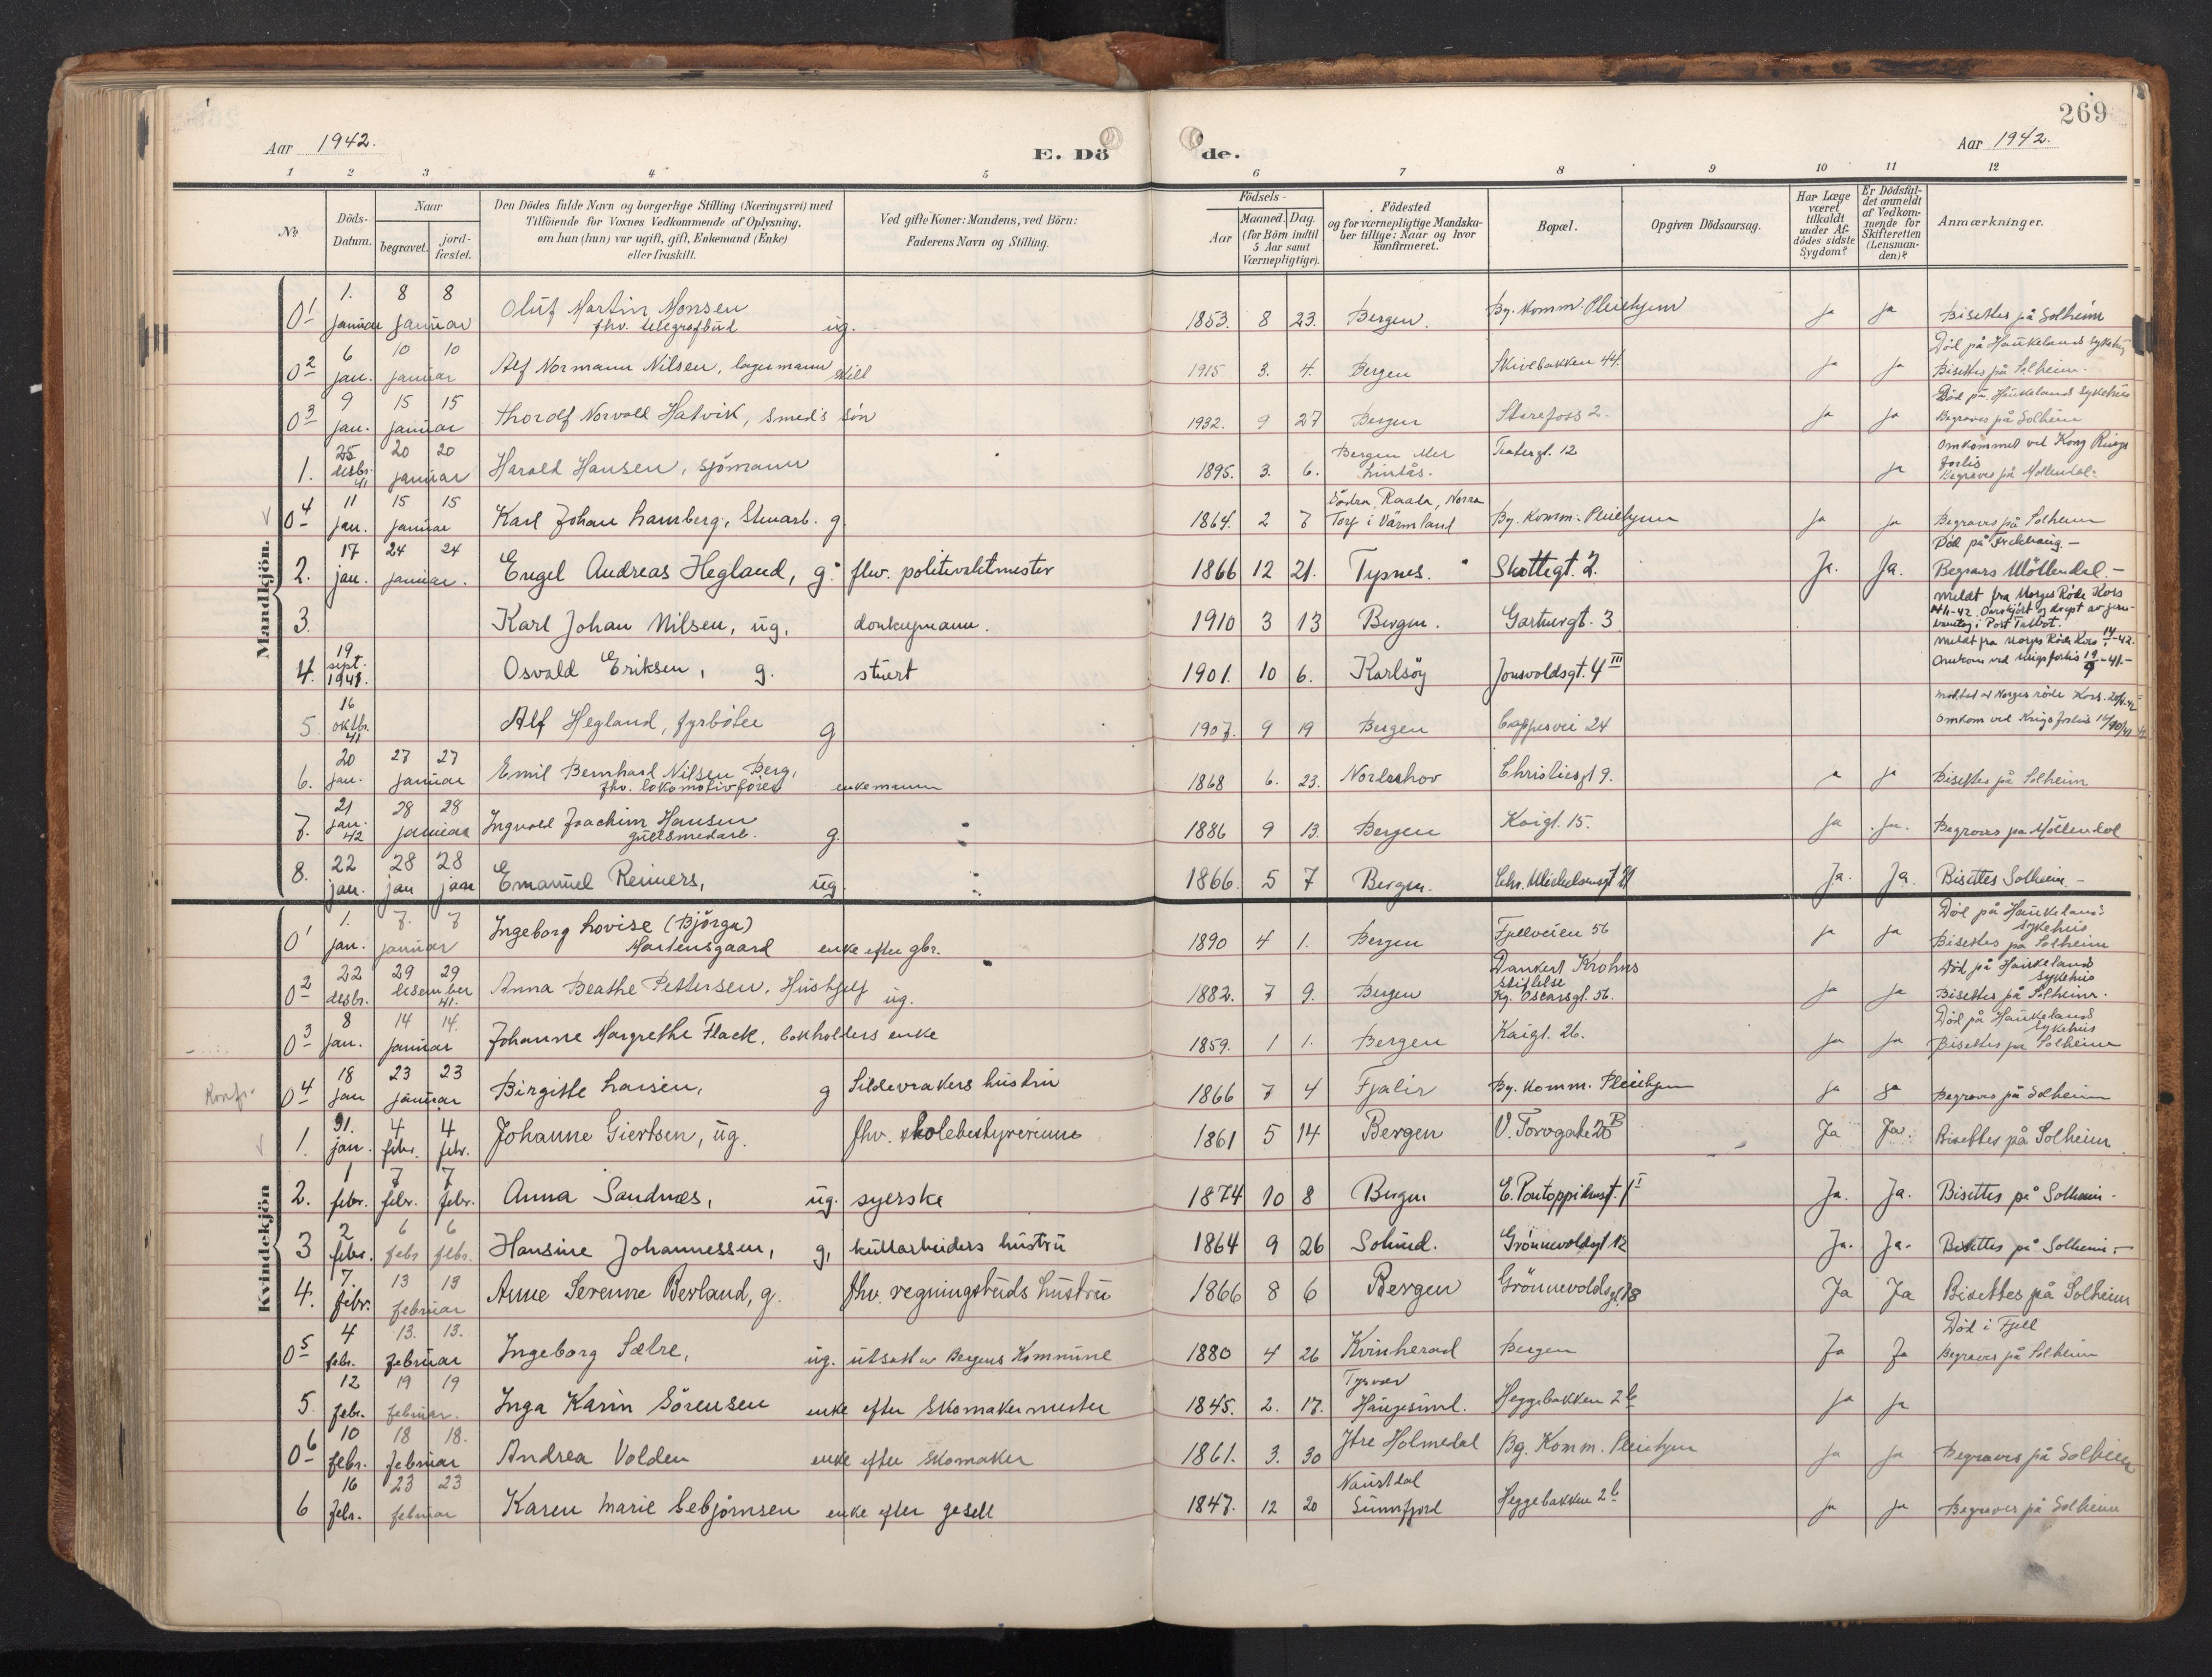 269
Aar 1942.
E. Döde.
Aar 1942.
1 2 3 4 5 6 7 8 9 10 11 12
No
Döds-Datum.
Naar
begravet.
jordfæstet.
Den Dödes fulde Navn og borgerlige Stilling (Næringsvei) med
Tilföiende for Voxnes Vedkommende af Oplysning,
om han (hun) var ugift, gift, Enkemand (Enke)
eller fraskilt.
Ved gifte Koner: Mandens, ved Börn:
Faderens Navn og Stilling.
Födsels-
Aar
Maaned. Dag.
(for Börn indtil
5 Aar samt
Værnepligtige).
Födested
og for værnepligtige Mandskaber tillige: Naar og hvor
konfirmeret.
Bopæl.
Opgiven Dödsaarsag.
Har Læge
været
tilkaldt
under Afdödes sidste
Sygdom?
Er Dödsfaldet anmeldt
af Vedkommende for
Skifteretten
(Lensmanden)?
Anmærkninger.
Mandkjön.
01 1. januar 8 8 januar Oluf Martin Monsen fhv. telegrafbud ug. 1853. 8 23. Bergen. By. Komm. Pleiehjem ja ja Bisettes på Solheim
02 6 jan. 10 10 januar Alf Normann Nilsen, lagermann skilt 1915 3. 4. Bergen Skivebakken 44. ja ja Död på Haukelands sykehus Bisettes på Solheim.
03 9 jan. 15 15 januar Thorolf Norvald Hatvik, smeds sön 1932. 9 27 Bergen Storefoss 2. ja ja Död på Haukelands sykehus Begraves på Solheim
1. 25 desbr. 41 20 20 januar Harald Hansen, sjömann 1895. 3. 6. Bergen Lindås. Teatergt. 12 ja Omkommet ved Kong Rings forlis Begraves på Mollendal.
04 11 jan. 15 15 januar Karl Johan Lamberg, Stuart. g. 1864. 2 7 Södra Raada, Norra Torp i Värmland By. Komm. Pleiehjem ja ja Begraves på Solheim
2. 17 jan. 24 24 januar. Engel Andreas Hegland, g. fhv. politivaktmester 1866 12 21. Tysnes. Skottegt. 2. Ja. Ja. Död på Frekhaug.- Begraves Möllendal.-
3. Karl Johan Nilsen, ug. donkeymann. 1910 3 13 Bergen. Gartnergt. 3 meldt fra Norges Röde Kors Overkjört og drept av jernbanetog i Port Talbot.
4. 19 sept. 1941. Osvald Eriksen, g. stuert 1901. 10 6. Karlsöy Jonsvoldsgt. 4 III meldt fra Norges Röde Kors Omkom ved krigsforlis 19/9-41.-
5 16 oktbr. 41 Alf Hegland, fyrböter g 1907. 9 19 Bergen Cappesvei 24 meldt av Norges röde Kors. Omkom ved Krigsforlis
6. 20 jan. 27 27 januar Emil Bernhard Nilsen Berg, fhv. lokomotivförer enkemann 1868 6. 23. Norderhov Christiesgt 9. ja Bisettes på Solheim
7. 21 jan. 42 28 28 januar Ingvald Joachim Hansen gullsmedarb. g. 1886 9 13. Bergen Kaigt. 15. Ja Ja. Begraves på Möllendal
8. 22 jan. 28 jan 28 jan Emanuel Reimers, ug. 1866. 5 7 Bergen. Chr. Michelsensgt Ja. Ja. Bisettes Solheim.-
Kvindekjön
01 1. jan. 7. 7 januar Ingeborg Lovise (Bjørga) Mortensgaard enke efter gbr. 1890 4 1. Bergen Fjellveien 56 ja ja Död på Haukelands sykehus Bisettes på Solheim
02 22 desbr. 29 29 desember 41. Anna Beathe Pettersen. Hushjelp ug. 1882. 7 9. Bergen Dankert Krohns stiftelse Kg. Oscarsgt. 56. ja ja Död på Haukelands sykehus Bisettes på Solheim.
03 8 jan. 14 14. januar Johanne Margrethe Flack, bokholders enke 1859. 1 1. Bergen Kaigt. 26. ja ja Död på Haukelands sykehus Bisettes på Solheim
Konf. 04 18 jan 23 23 januar Birgitte Larsen, g Sildevrakers hustru 1866 7 4 Fjaler By. Komm. Pleiehjem ja ja Begraves på Solheim
1. 31. jan. 4 febr. 4 febr. Johanne Giertsen, ug. fhv. skolebestyrerinne 1861 5 14 Bergen V. Torvgate 20 B Ja Ja. Bisettes på Solheim
2. 1 febr. 7 febr. 7 febr. Anna Sandnæs, ug. syerske 1874 10 8 Bergen E. Pontoppidansgt. 1 I Ja. Ja. Bisettes på Solheim-
3 2 febr. 6 febr 6 febr. Hansine Johannessen, g, kullarbeiders hustru 1864 9 26 Solund. Grönnevoldsgt 12 Ja. Ja. Bisettes på Solheim.-
4. 7. febr. 13 13 februar Anne Serenne Berland, g. fhv. regningsbuds hustru 1866 8 6 Bergen Grönnevoldsgt. 18 Ja Ja Bisettes på Solheim
05 4 febr. 13. 13. februar Ingeborg Sælre, ug. utsatt av Bergens Kommune 1880 4 26 Kvinherad Bergen Ja Ja Död i Fjell Begraves på Solheim
5. 12 febr. 19 19 februar. Inga Karin Sörensen enke efter skomakermester 1845. 2. 17. Tysvær Haugesund. Heggebakken 2b ja ja
06 10 febr. 18 18. februar Andrea Volden enke efter skomaker 1861. 3. 30 Ytre Holmedal By. Komm. Pleiehjem ja ja Begraves på Solheim
6 16 febr. 23 23 februar Karen Marie Sebjörnsen enke efter gesell 1847. 12 20 Naustdal Sunnfjord Heggebakken 2b ja ja Begraves på Solheim